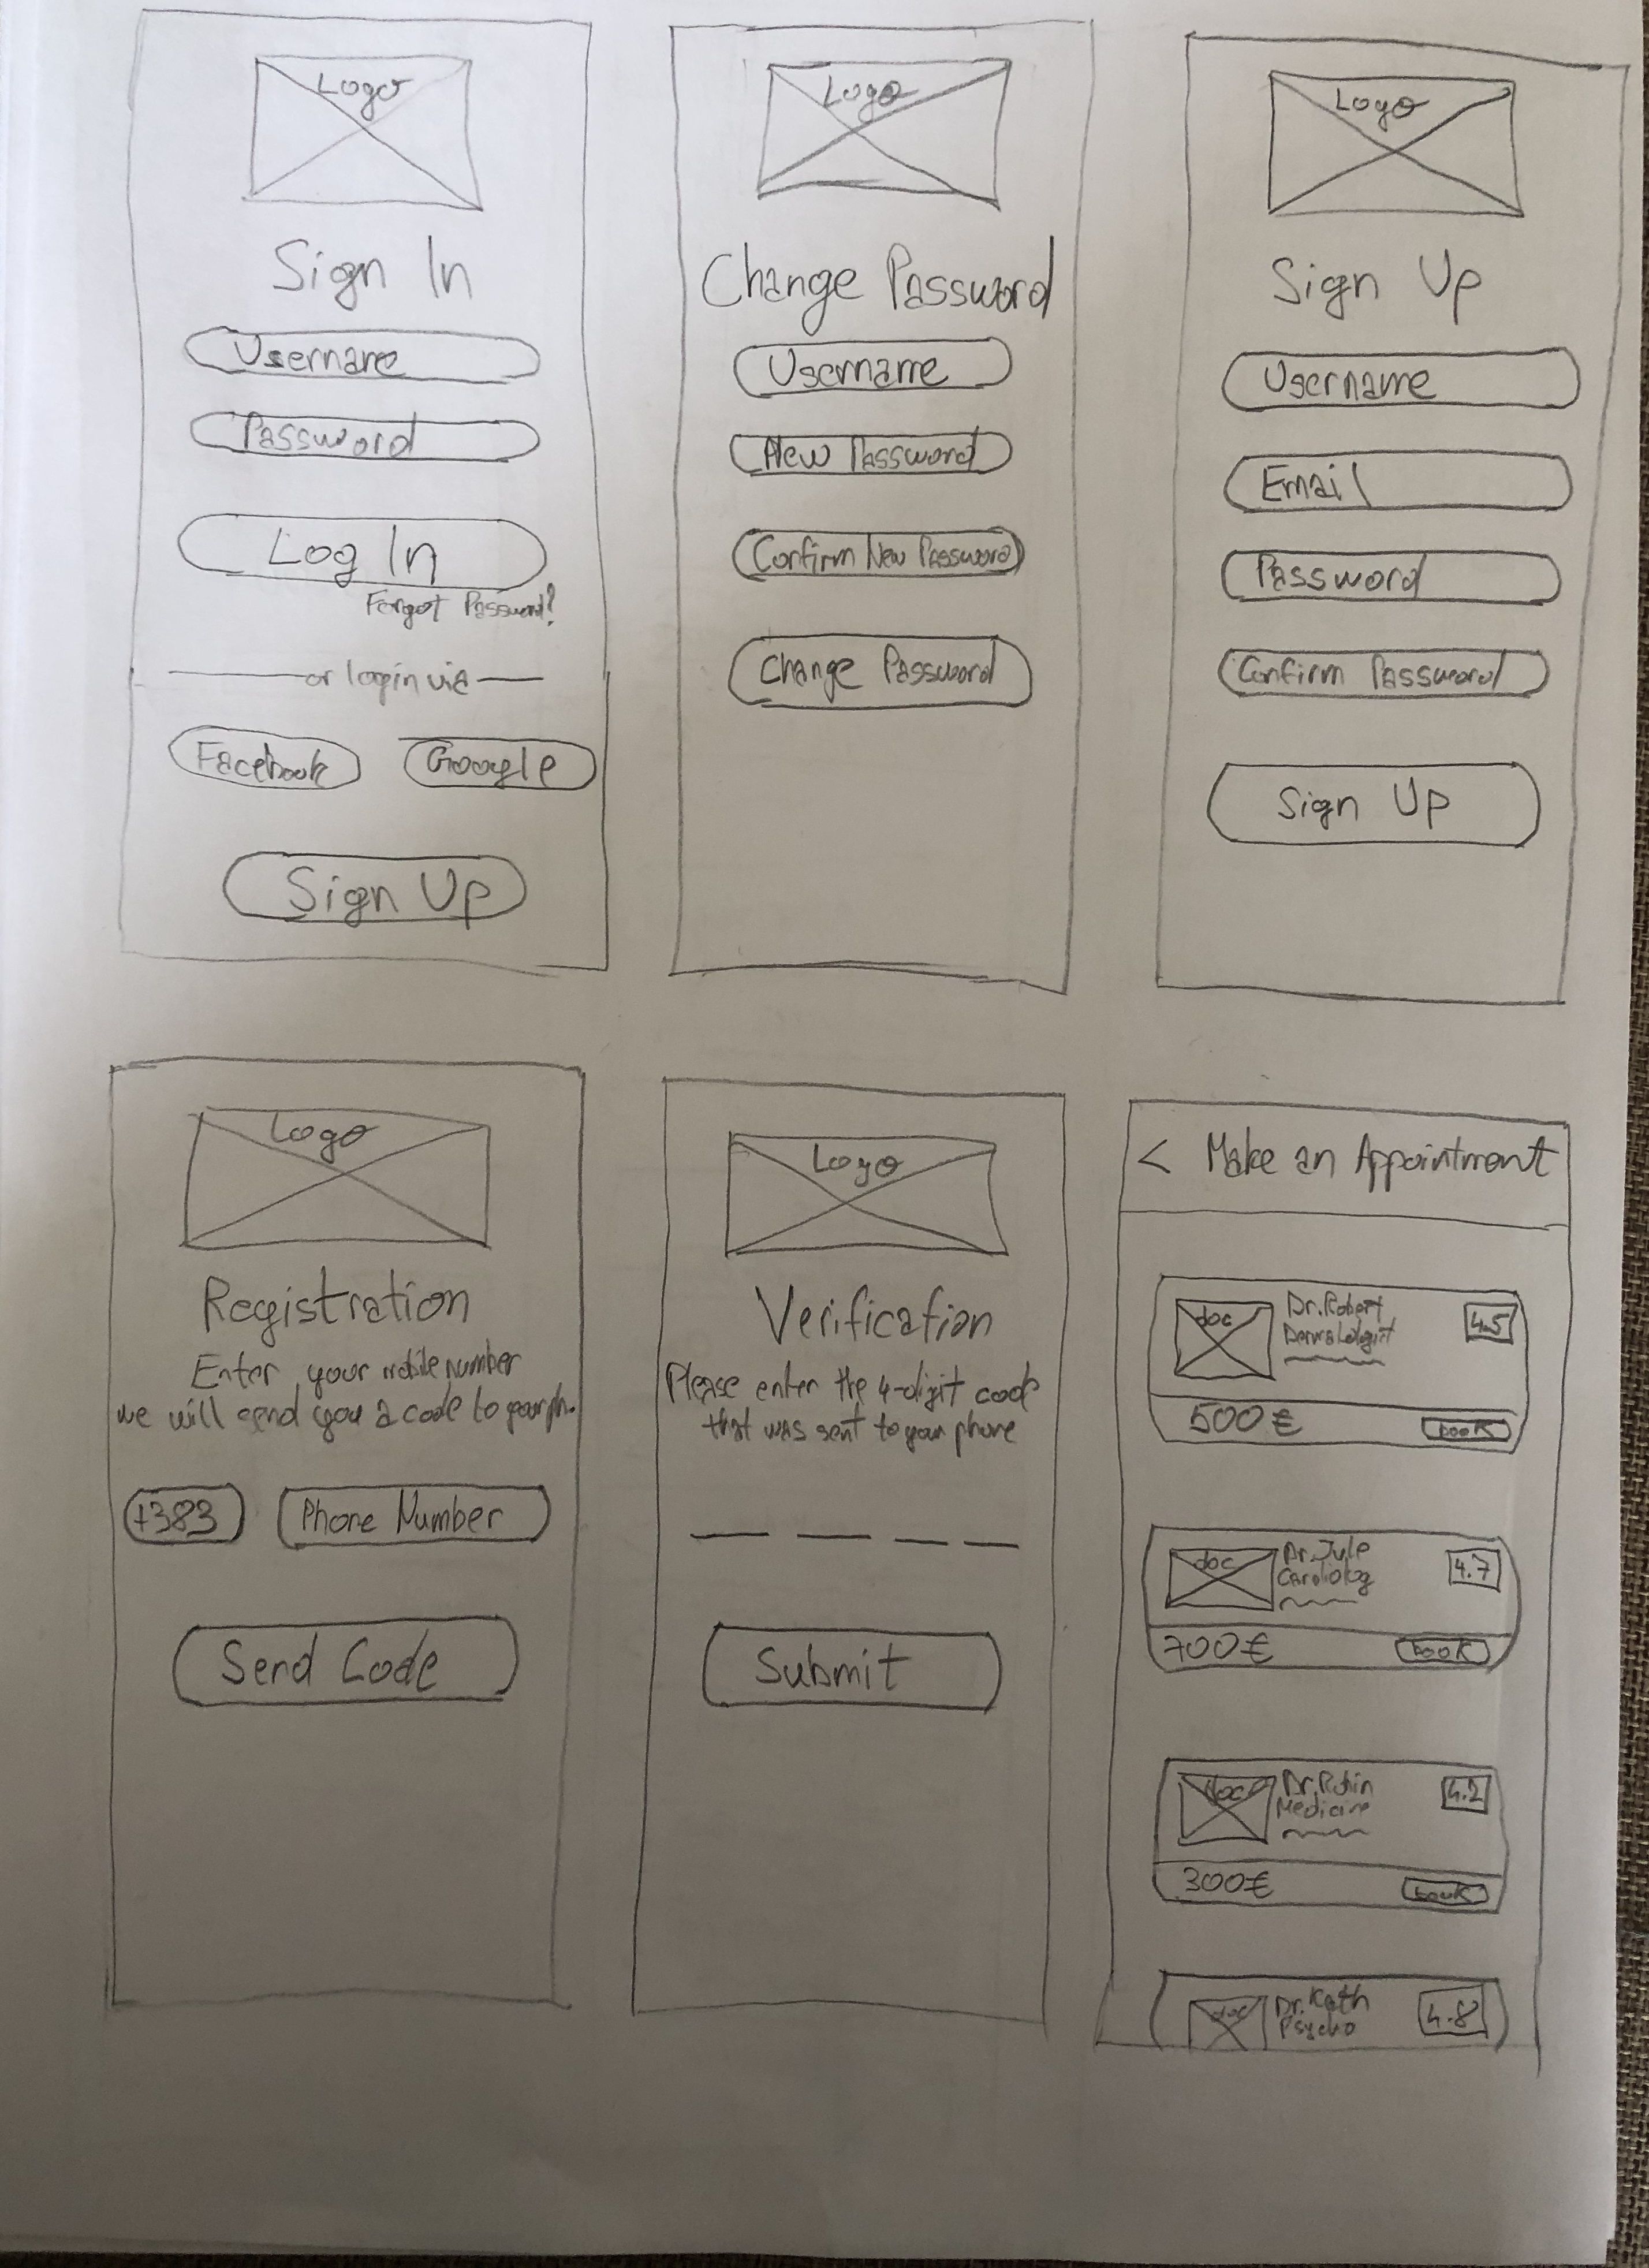 Logo
Sign In
Username
Password
Log In
Forgot Password?
or login via
Facebook
Google
Sign Up
Logo
Change Password
Username
New Password
Confirm New Password
Change Password
Logo
Sign Up
Username
Email
Password
Confirm Password
Sign Up
Logo
Registration
Enter your mobile number
we will send you a code to your ph.
+383
Phone Number
Send Code
Logo
Verification
Please enter the 4-digit code
that was sent to your phone
Submit
< Make an Appointment
doc
Dr.Robert
4.5
500€
book
doc
Dr.Jule
Cardiolog
4.7
700€
book
doc
Dr.Robin
Medicine
4.2
300€
book
doc
Dr.Kath
Psycho
4.8